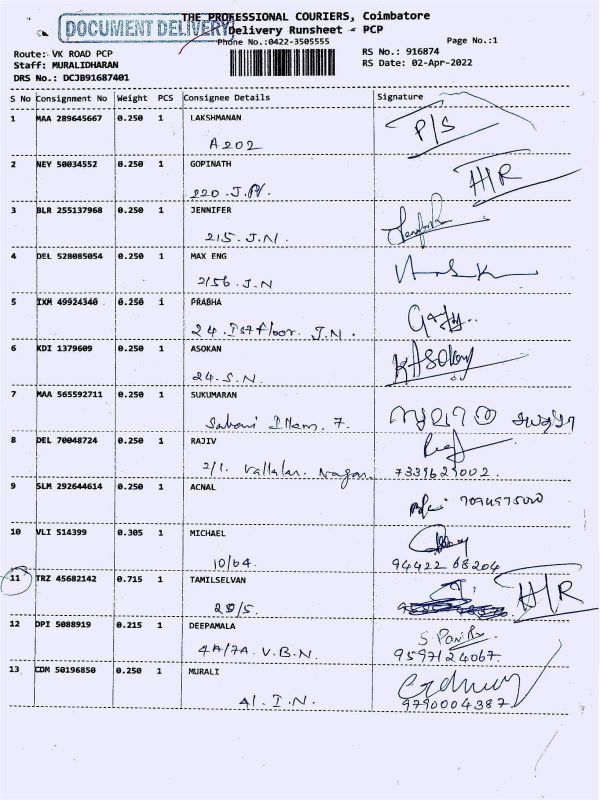 THE PROFESSIONAL COURIERS, Coimbatore
DOCUMENT DELIVERY
Delivery Runsheet - PCP
Phone No.:0422-3505555
Page No.:1
Route: VK ROAD PCP
RS No.: 916874
Staff: MURALIDHARAN
RS Date: 02-Apr-2022
DRS No.: DCJB91687401
S No Consignment No Weight PCS Consignee Details Signature
1 MAA 289645667 0.250 1 LAKSHMANAN P/S
A202
2 NEY 50034552 0.250 1 GOPINATH H/R
220 J.N.
3 BLR 255137968 0.250 1 JENNIFER
215 J.N.
4 DEL 528085054 0.250 1 MAX ENG
2/56 J.N
5 IXM 49924340 0.250 1 PRABHA
24 Ist floor J.N.
6 KDI 1379609 0.250 1 ASOKAN KASOkan
24 S.N.
7 MAA 565592711 0.250 1 SUKUMARAN
Illam 7.
8 DEL 70048724 0.250 1 RAJIV
2/1. Vallalar Nagar. 7339629002.
9 SLM 292644614 0.250 1 ACNAL
10 VLI 514399 0.305 1 MICHAEL
10/64. 94422 68204
11 TRZ 45682142 0.715 1 TAMILSELVAN H/R
12 DPI 5088919 0.215 1 DEEPAMALA
4A/7A. V.B.N. 9597124067.
13 CDM 50196850 0.250 1 MURALI
41. I.N. 9790004387